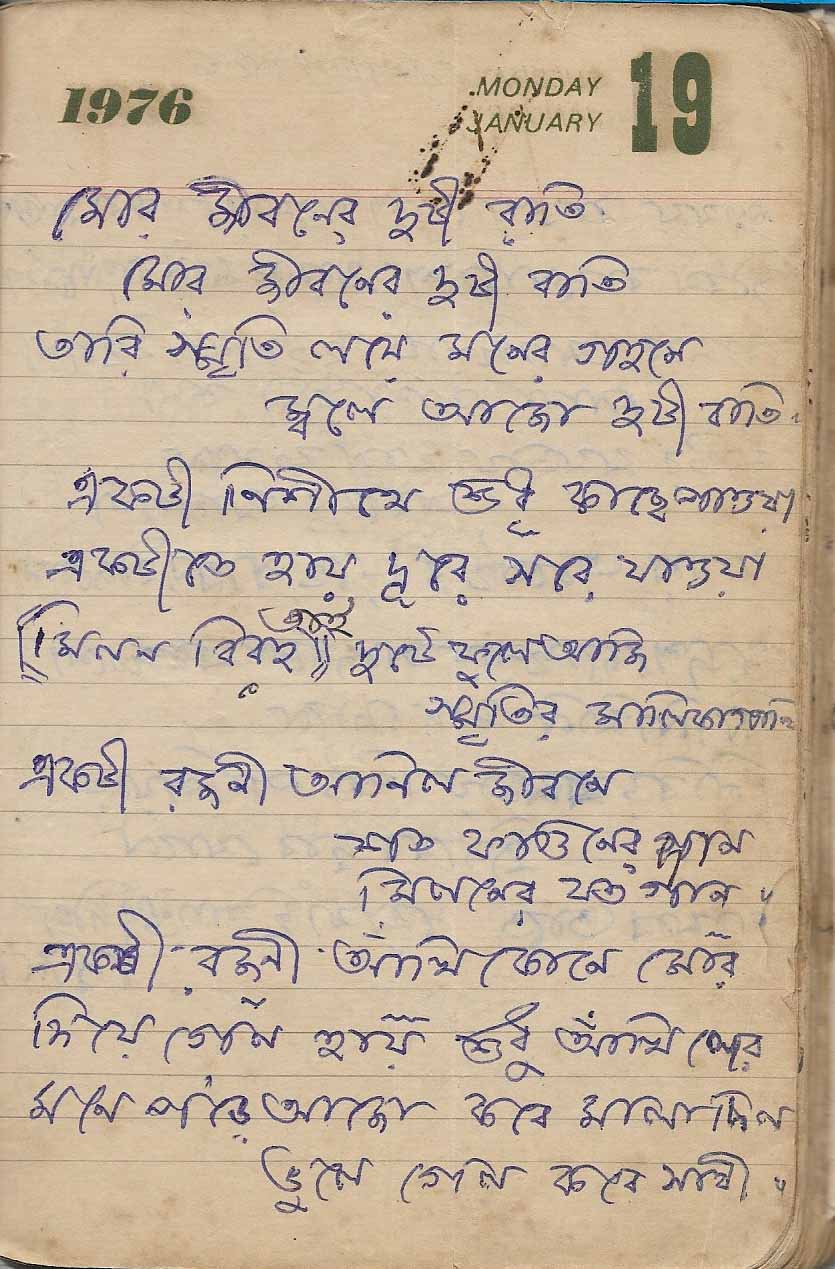 1976
MONDAY
JANUARY
19
মোর জীবনের দুটী রাতি
মোর জীবনের দুটী রাতি
তারি স্মৃতি লয়ে মনের গহনে
জ্বলে আজো দুটী বাতি
একটী নিশীথে শুধু কাছে পাওয়া
একটীতে হায় দূরে সরে যাওয়া
তাই
(মিলন বিরহ) দুটি ফুলে আজি
স্মৃতির মালিকা গাঁথি
একটী রজনী আনিল জীবনে
শত ফাগুনের
মিলনের যত গান
একটী রজনী আঁখি কোনে মোর
দিয়ে গেল হায় শুধু আঁখি লোর
মনে পড়ে আজো কবে মালা দিল
ভুলে গেল কবে সাথী